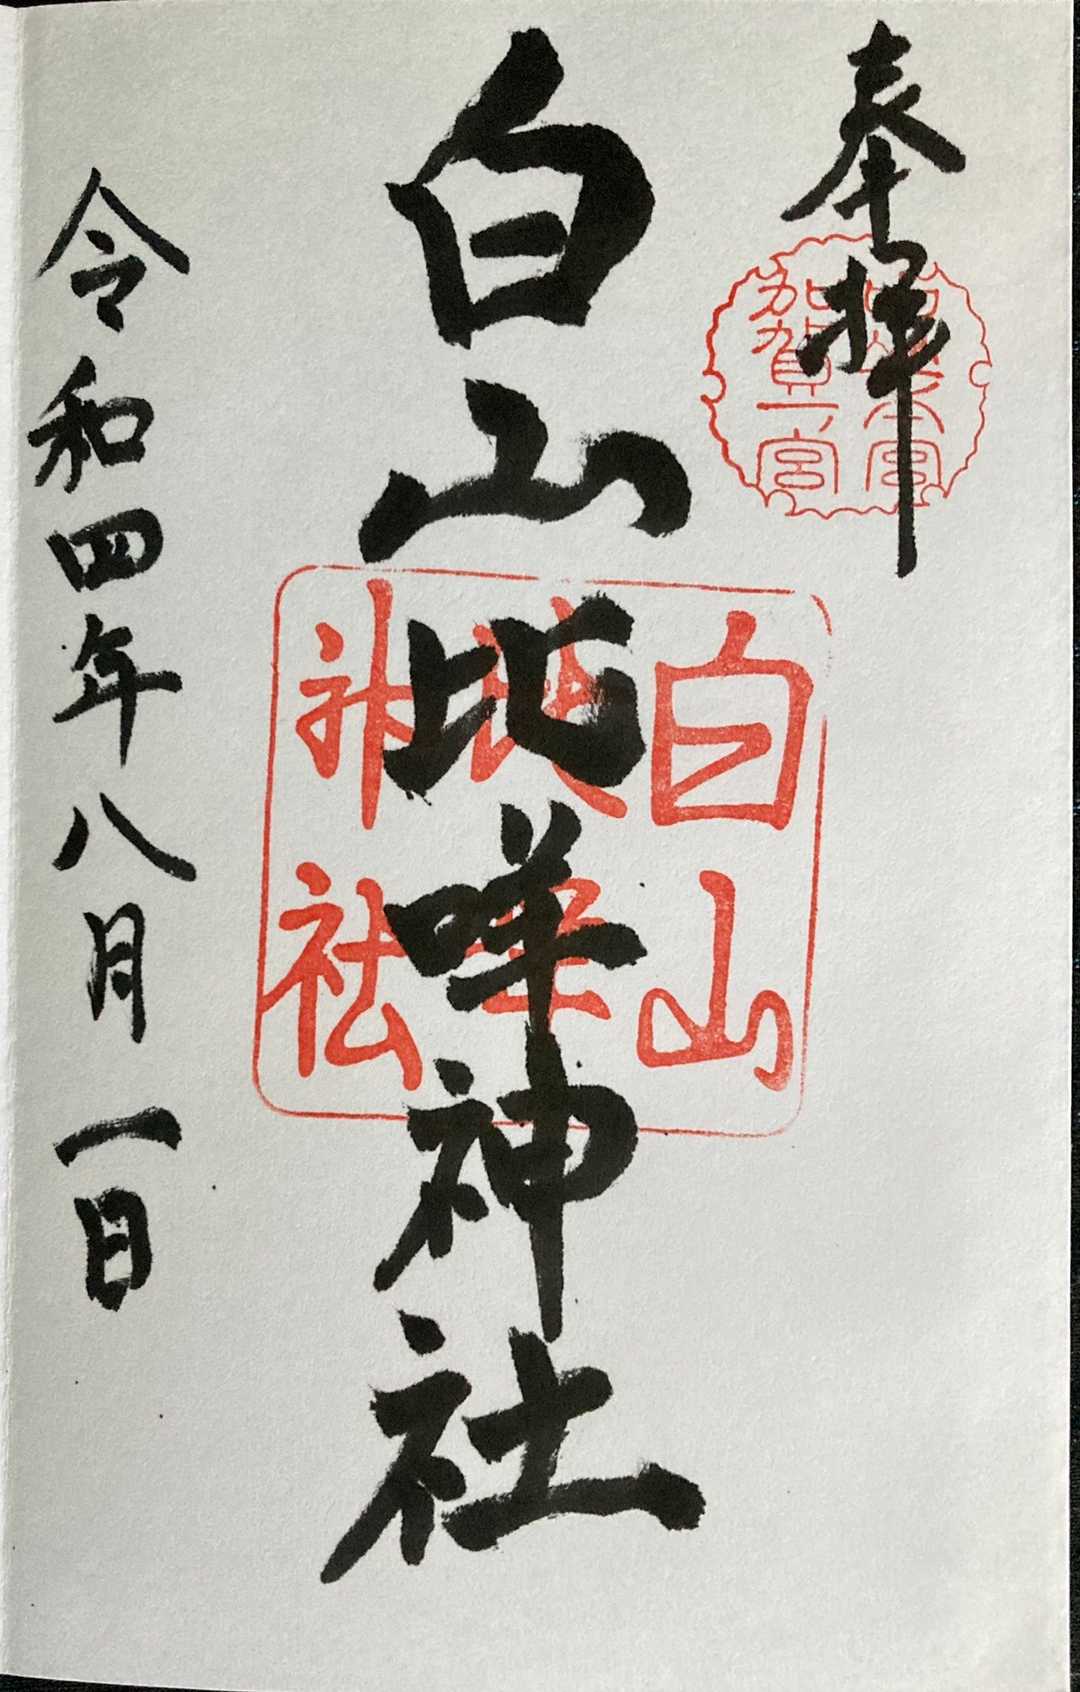 奉拝
総本宮
加賀一宮
白山比咩神社
白山
比咩
神社
令和四年八月一日